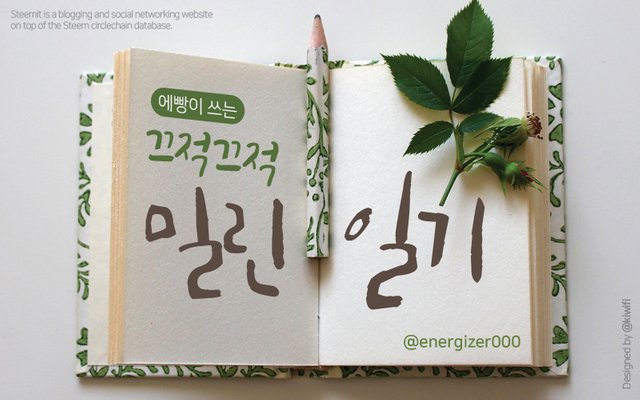 Steemit is a blogging and social networking website
on top of the Steem circlechain database.
에빵이 쓰는
끄적끄적
밀린 일기
@energizer000
Designed by @kiwifi